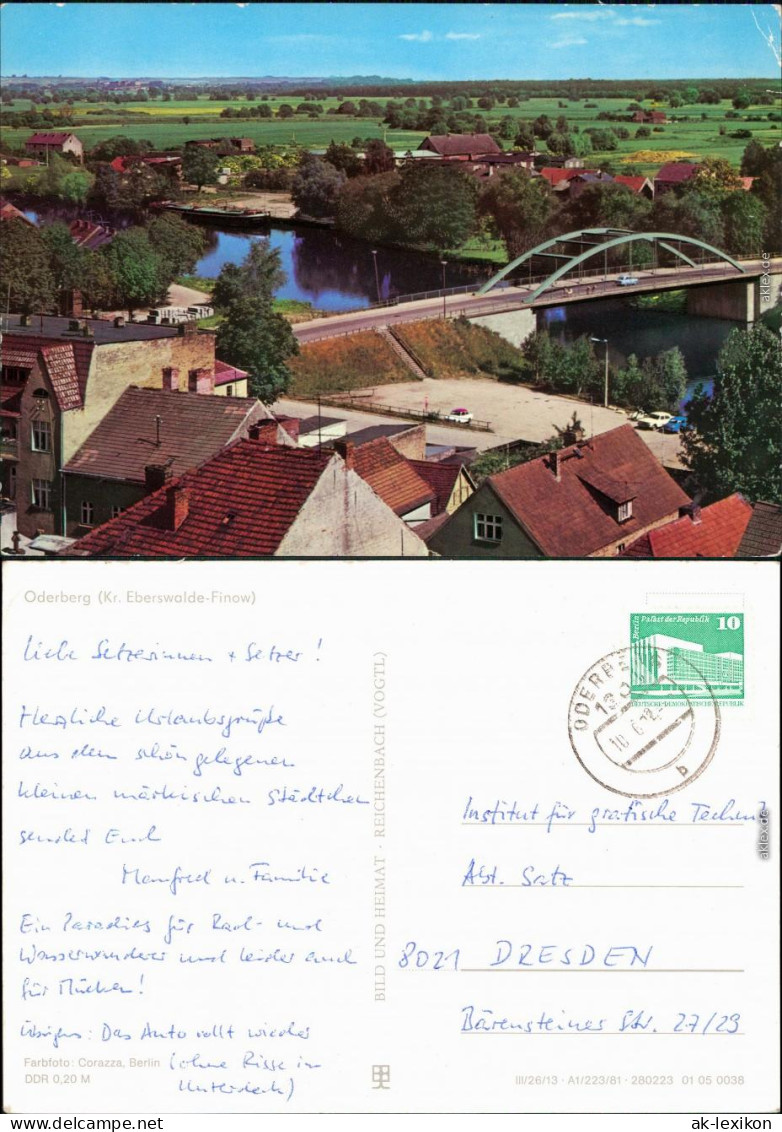 Oderberg (Kr. Eberswalde-Finow)
Liebe Setzerinnen + Setzer!
Herzliche Urlaubsgrüße
aus dem schön gelegenen
kleinen märkischen Städtchen
sendet Euch
Manfred u. Familie
Ein Paradies für Rad- und
Wasserwanderer und leider auch
für Mücken!
Übrigens: Das Auto rollt wieder
(ohne Risse im
Unterdeck)
Farbfoto: Corazza, Berlin
DDR 0,20 M
BILD UND HEIMAT · REICHENBACH (VOGTL)
Berlin Palast der Republik 10
DEUTSCHE DEMOKRATISCHE REPUBLIK
ODERBERG
b
Institut für grafische Technik
Abt. Satz
8021 DRESDEN
Bärensteiner Str. 27/29
III/26/13 · A1/223/81 · 280223 01 05 0038
aklex.de
aklex.de
ak-lexikon